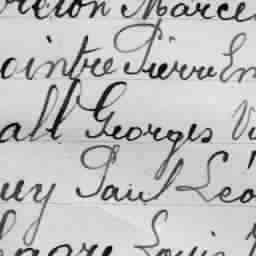 reton Marce
ointre Pierre Em
all Georges Vi
uy Paul Léo
Louis